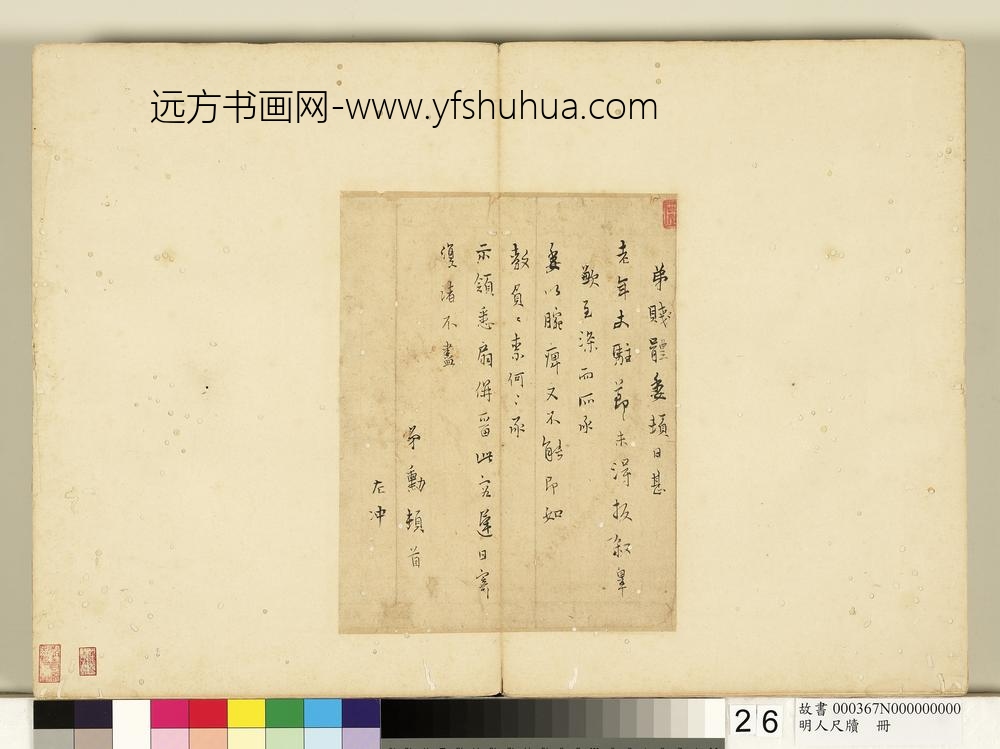 远方书画网-www.yfshuhua.com
弟賤體委頓日甚
老年丈駐節未得扳叙辠
歉至深而所承
委以腕痺又不能即如
教負〻柰何〻承
示領悉扇併留此容遲日寄
復诸不盡
弟勳頓首
左冲
26
故書 000367N000000000
明人尺牘 冊